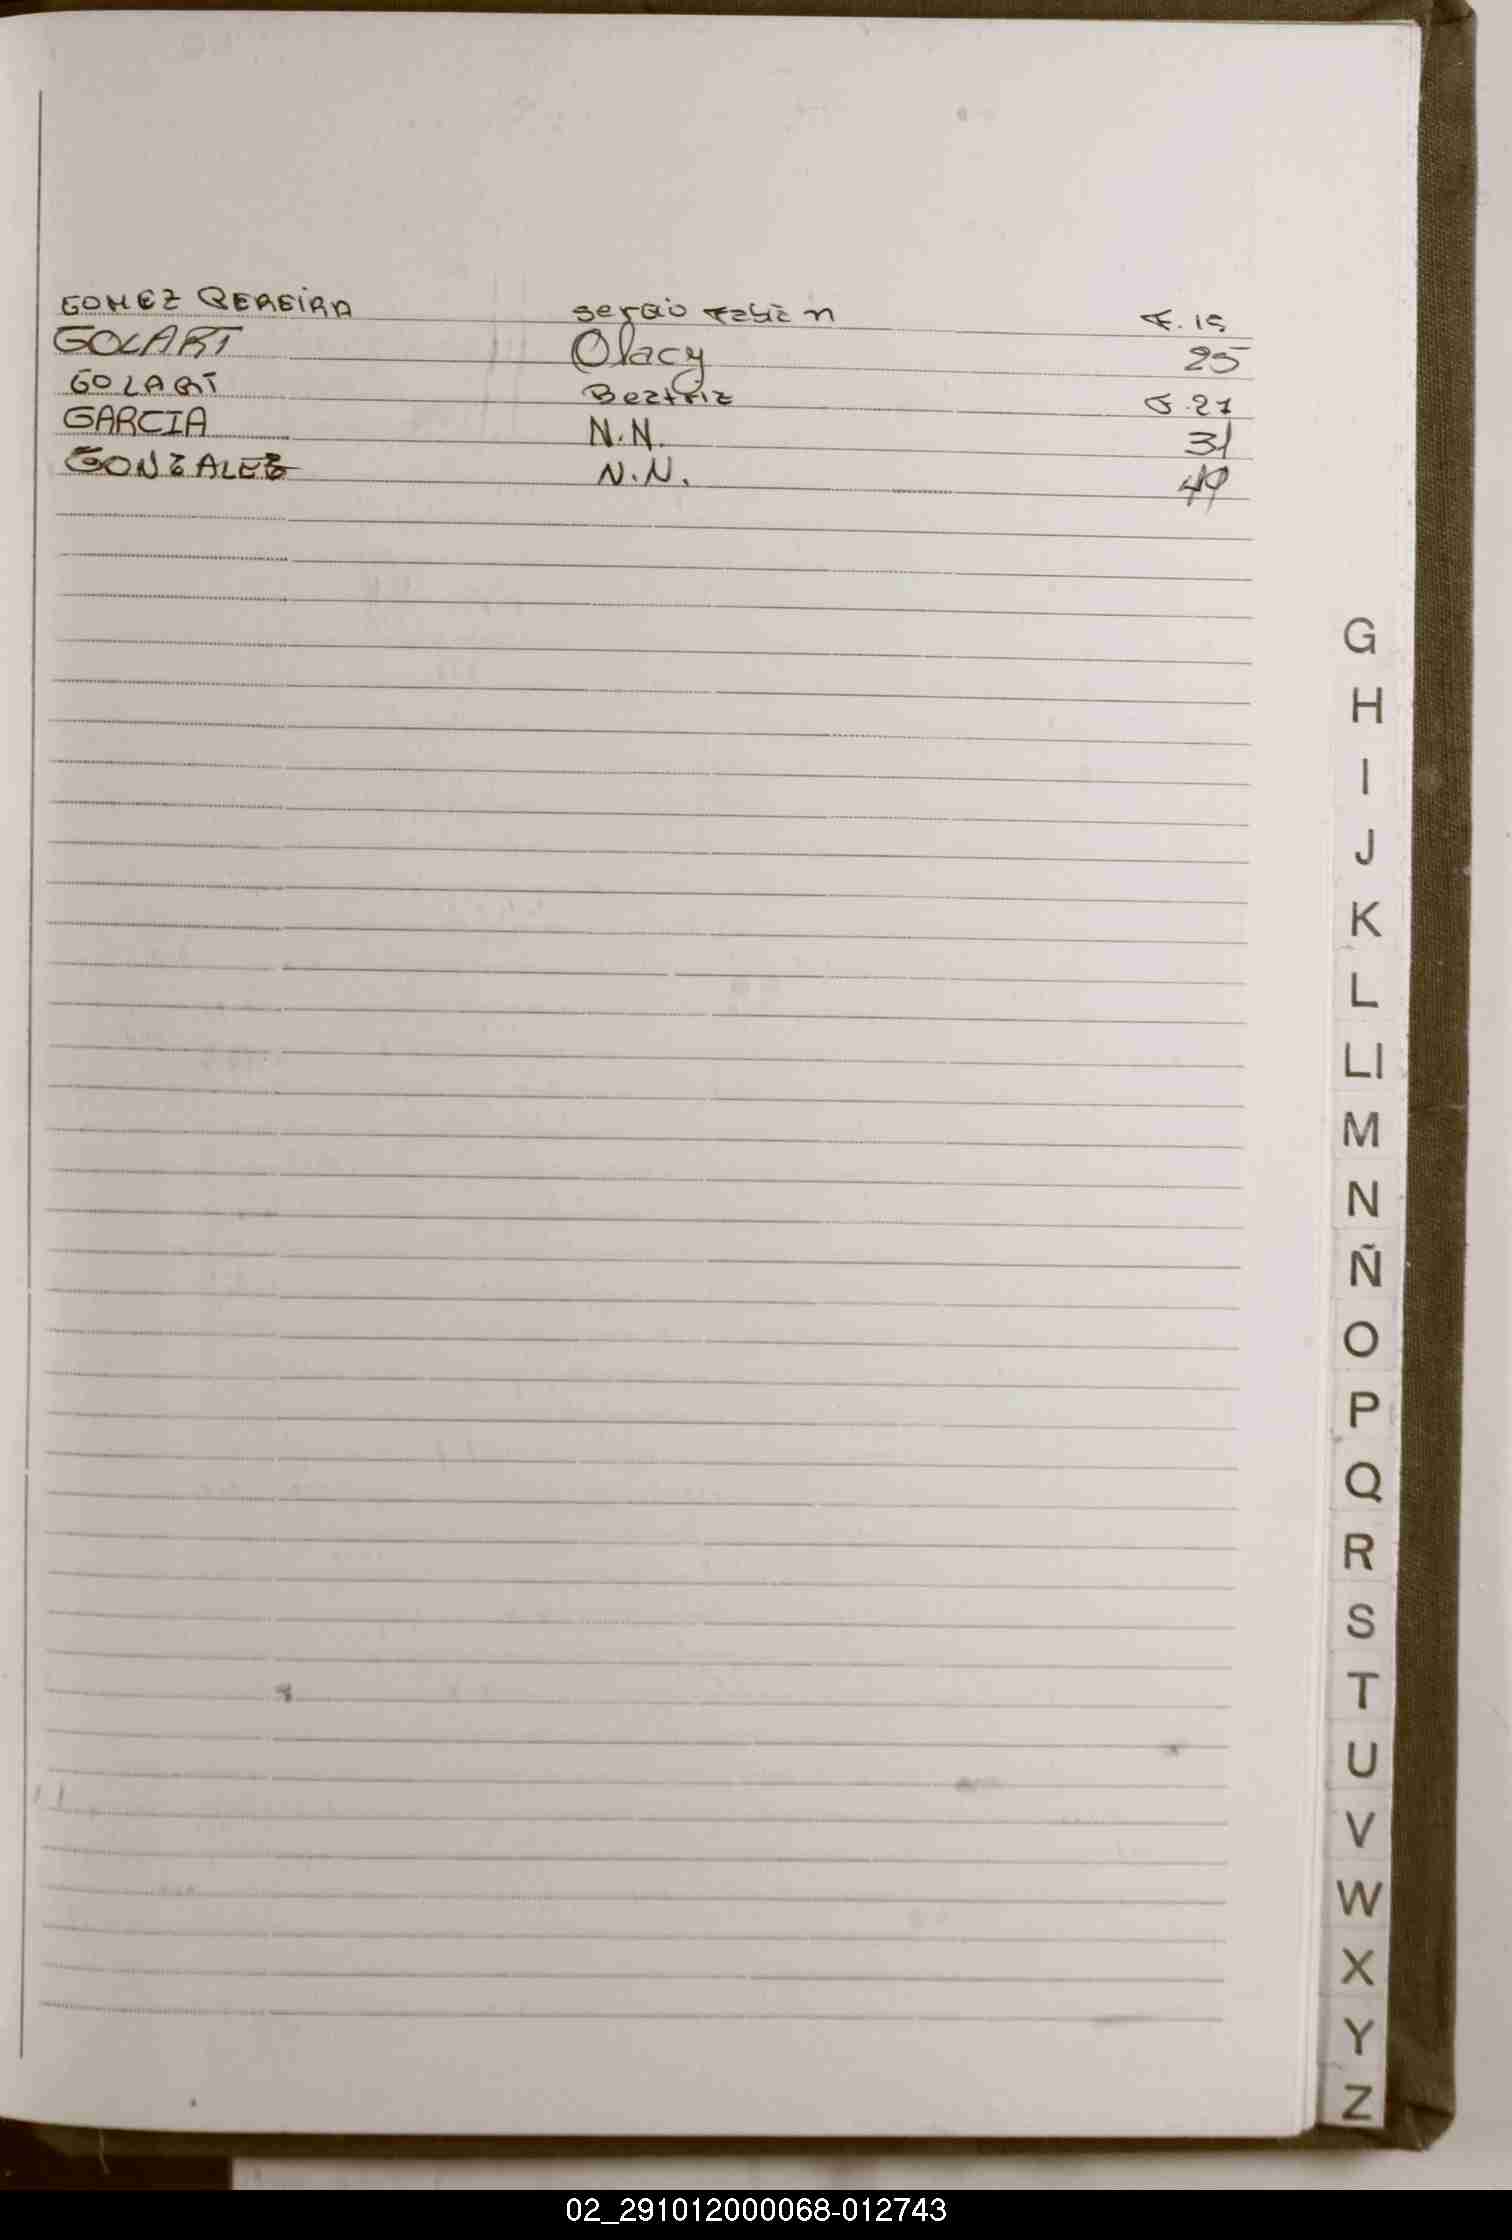 GOMEZ PEREIRA sergio Fabián F. 15
GOLART Olacy 25
GOLART Beatriz F. 27
GARCIA N.N. 31
GONZALEZ N.N. 49
G
H
I
J
K
L
Ll
M
N
Ñ
O
P
Q
R
S
T
U
V
W
X
Y
Z
02_291012000068-012743